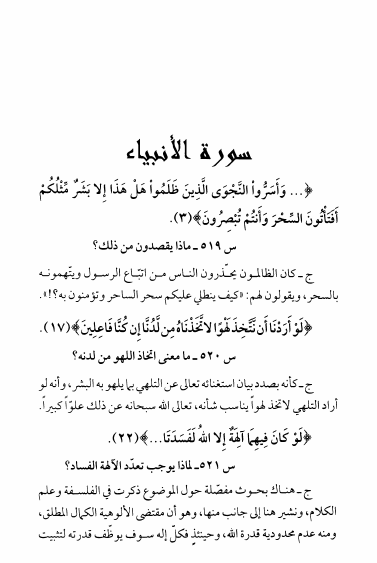 سورة الأنبياء
﴿... وَأَسَرُّواْ النَّجْوَى الَّذِينَ ظَلَمُواْ هَلْ هَذَا إِلا بَشَرٌ مِّثْلُكُمْ
أَفَتَأْتُونَ السِّحْرَ وَأَنتُمْ تُبْصِرُونَ﴾(٣).
س ٥١٩ ـ ماذا يقصدون من ذلك؟
ج ـ كان الظالمون يحذّرون الناس من اتبّاع الرسول ويتّهمونه
بالسحر، ويقولون لهم: «كيف ينطلي عليكم سحر الساحر وتؤمنون به؟!».
﴿لَوْ أَرَدْنَا أَن نَّتَّخِذَ لَهْوًا لاتَّخَذْنَاهُ مِن لَّدُنَّا إِن كُنَّا فَاعِلِينَ﴾(١٧).
س ٥٢٠ ـ ما معنى اتخاذ اللهو من لدنه؟
ج ـ كأنه بصدد بيان استغنائه تعالى عن التلهي بما يلهو به البشر، وأنه لو
أراد التلهي لاتخذ لهواً يناسب شأنه، تعالى الله سبحانه عن ذلك علوّاً كبيراً.
﴿لَوْ كَانَ فِيهِمَا آلِهَةٌ إِلا اللهُ لَفَسَدَتَا...﴾(٢٢).
س ٥٢١ ـ لماذا يوجب تعدّد الآلهة الفساد؟
ج ـ هناك بحوث مفصّلة حول الموضوع ذكرت في الفلسفة وعلم
الكلام، ونشير هنا إلى جانب منها، وهو أن مقتضى الألوهية الكمال المطلق،
ومنه عدم محدودية قدرة الله، وحينئذٍ فكلّ إله سوف يوظّف قدرته لتثبيت